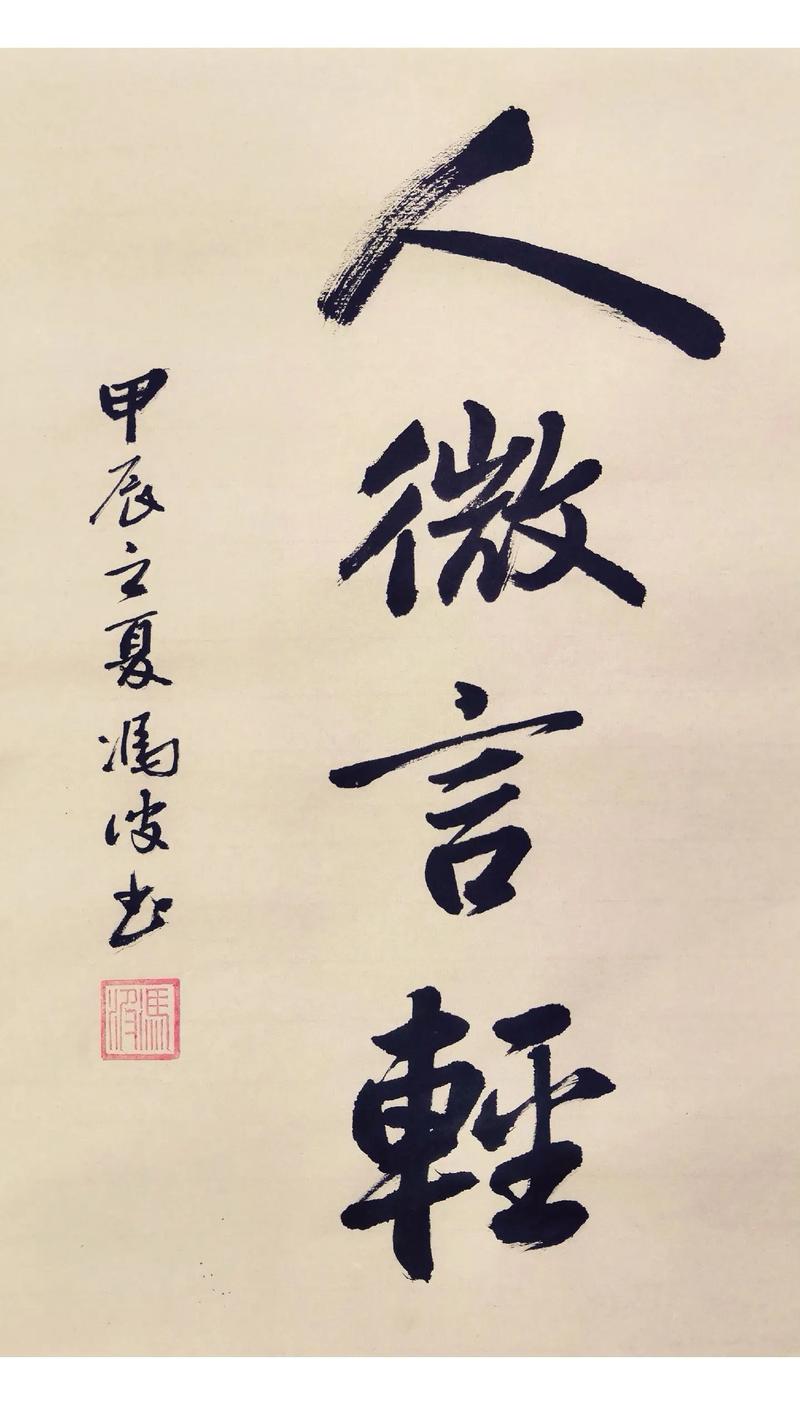 人微言輕
甲辰立夏馮波书
馮波